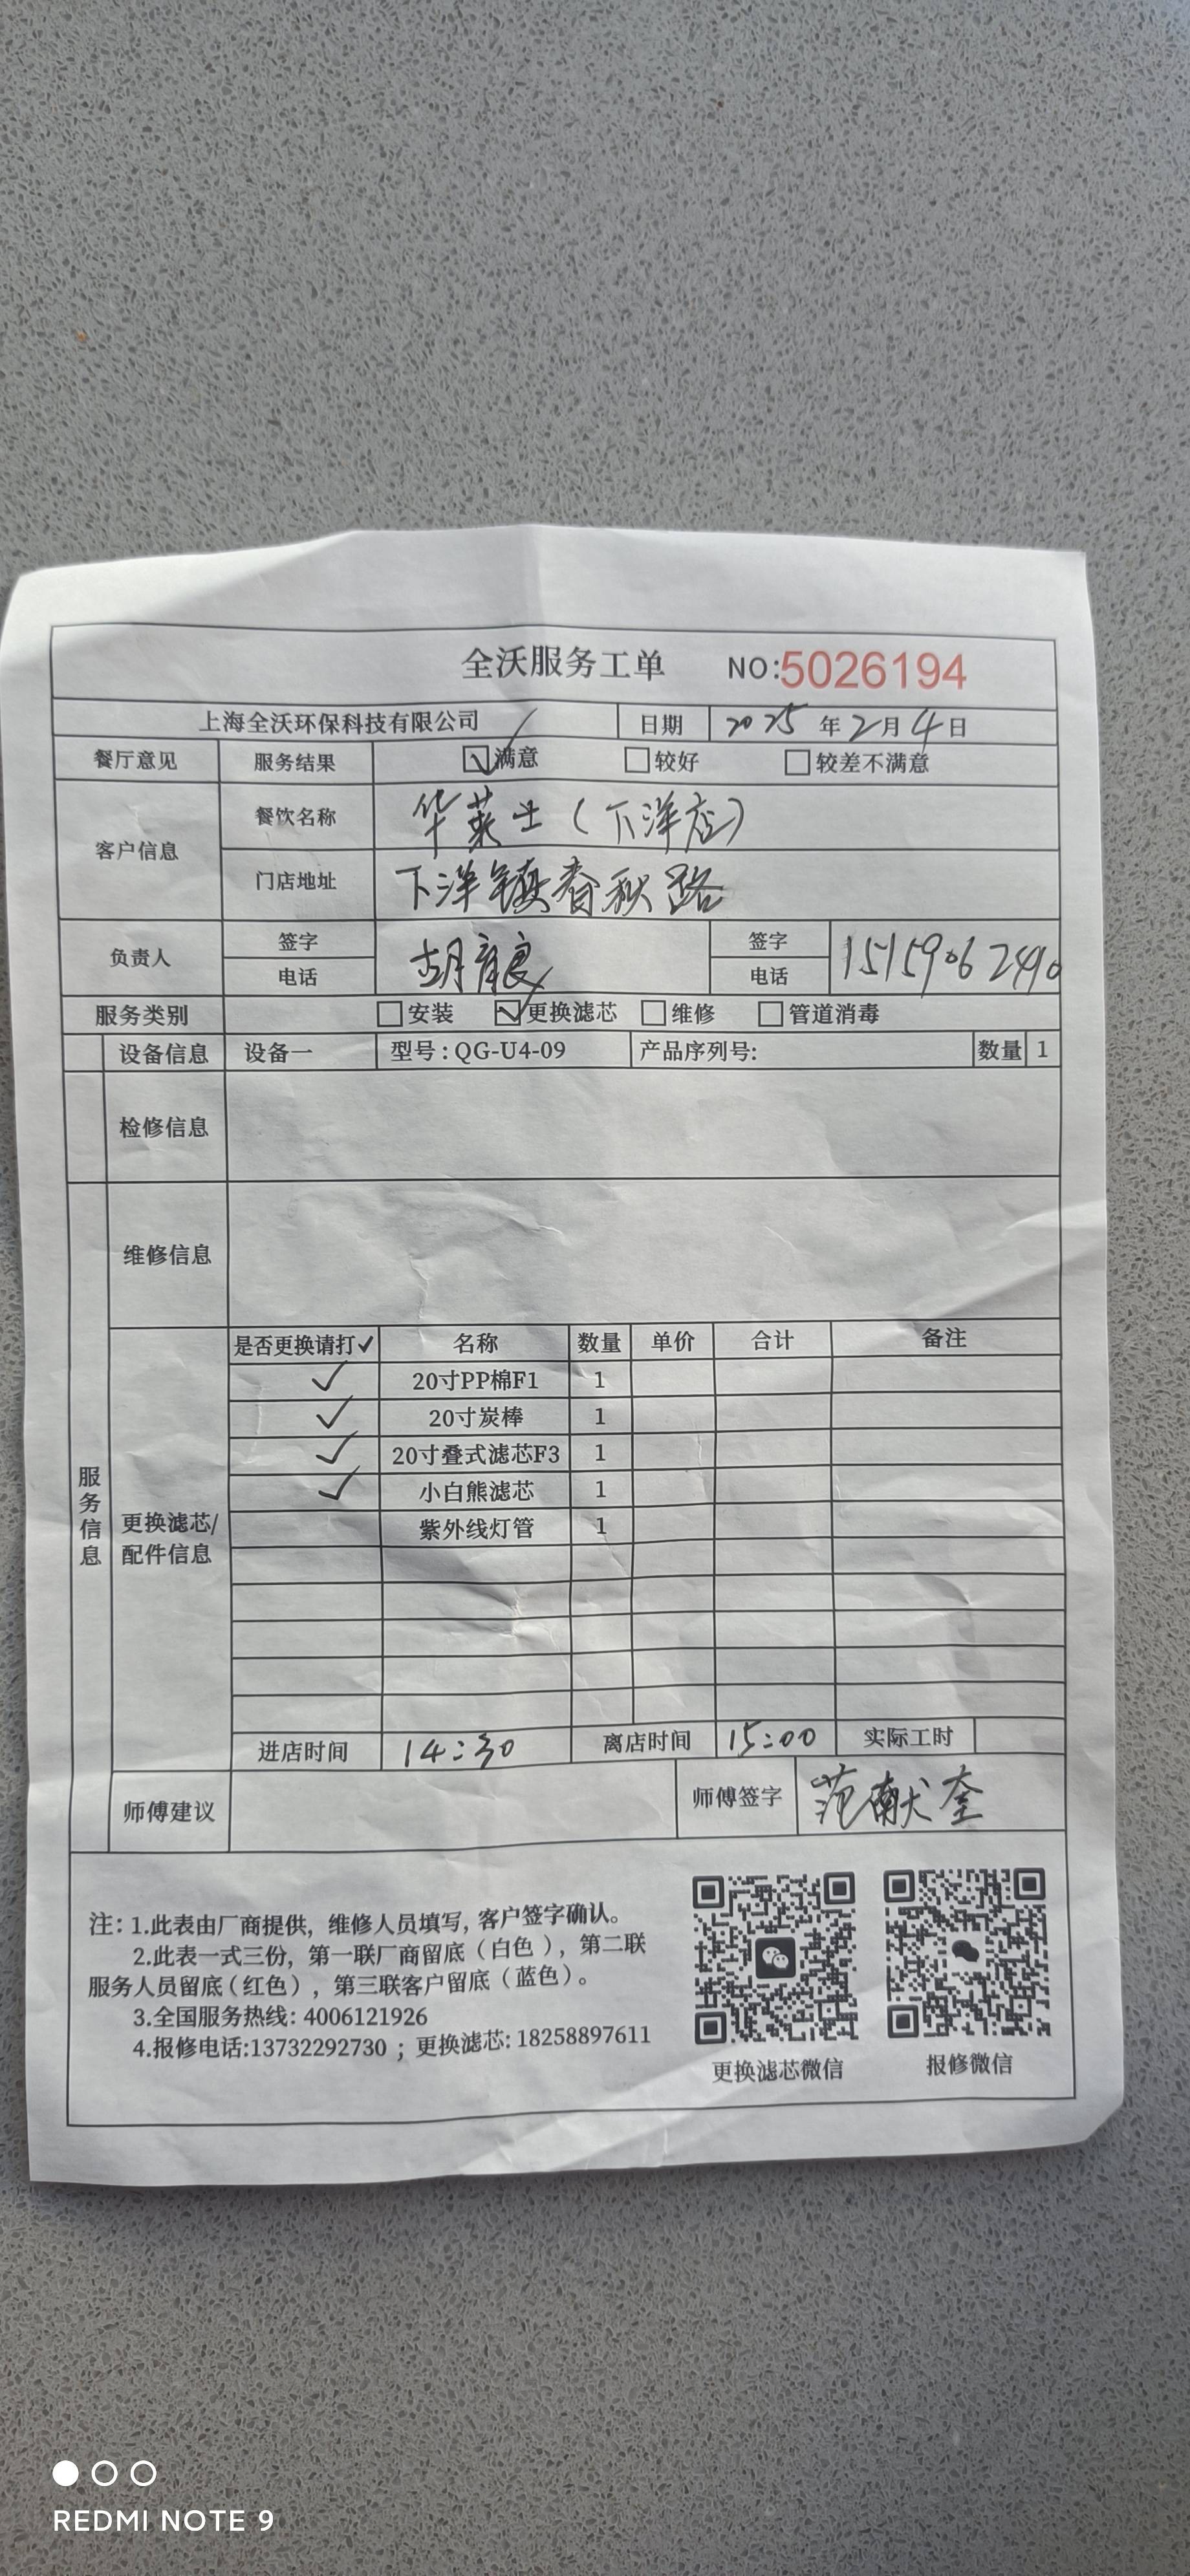 全沃服务工单 NO:5026194
上海全沃环保科技有限公司 日期 2025年2月4日
餐厅意见 服务结果 ☑满意 ☐较好 ☐较差不满意
客户信息 餐饮名称 华莱士（下洋店）
门店地址 下洋镇春秋路
负责人 签字 电话 胡 良 签字 电话 15159062490
服务类别 ☐安装 ☑更换滤芯 ☐维修 ☐管道消毒
设备信息 设备一 型号:QG-U4-09 产品序列号: 数量 1
检修信息
维修信息
服务信息
更换滤芯/配件信息
是否更换请打✓ 名称 数量 单价 合计 备注
✓ 20寸PP棉F1 1
✓ 20寸炭棒 1
✓ 20寸叠式滤芯F3 1
✓ 小白熊滤芯 1
紫外线灯管 1
进店时间 14:30 离店时间 15:00 实际工时
师傅建议 师傅签字 范献奎
注: 1.此表由厂商提供, 维修人员填写, 客户签字确认。
2.此表一式三份, 第一联厂商留底（白色）, 第二联
服务人员留底（红色）, 第三联客户留底（蓝色）。
3.全国服务热线: 4006121926
4.报修电话:13732292730 ; 更换滤芯: 18258897611
更换滤芯微信 报修微信
REDMI NOTE 9